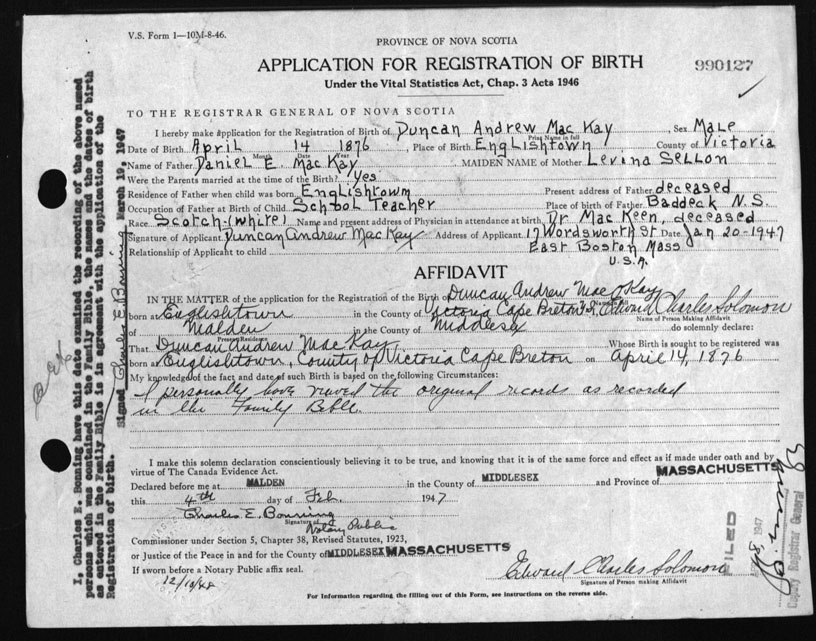 V.S. Form 1—10M-8-46.
PROVINCE OF NOVA SCOTIA
APPLICATION FOR REGISTRATION OF BIRTH
990127
Under the Vital Statistics Act, Chap. 3 Acts 1946
TO THE REGISTRAR GENERAL OF NOVA SCOTIA
I hereby make application for the Registration of Birth of Duncan Andrew Mac Kay, Sex Male
Print Name in full
Date of Birth April 14 1876, Place of Birth Englishtown County of Victoria
Month Date Year
Name of Father Daniel E. Mac Kay MAIDEN NAME of Mother Levina Sellon
Were the Parents married at the time of Birth? Yes
Residence of Father when child was born Englishtown Present address of Father deceased
Occupation of Father at Birth of Child School Teacher Place of birth of Father Baddeck N.S.
Race Scotch-(white) Name and present address of Physician in attendance at birth Dr Mac Keen, deceased
Signature of Applicant Duncan Andrew Mac Kay Address of Applicant 17 Wordsworth St Date Jan 20-1947
East Boston Mass
Relationship of Applicant to child U.S.A.
AFFIDAVIT
IN THE MATTER of the application for the Registration of Birth of Duncan Andrew Mac Kay
born at Englishtown in the County of Victoria Cape Breton Edward Charles Solomon
Name of Person Making Affidavit
Malden in the County of Middlesex do solemnly declare:
Present Residence
That Duncan Andrew Mac Kay, Whose Birth is sought to be registered was
born at Englishtown, County of Victoria Cape Breton on April 14, 1876
My knowledge of the fact and date of such Birth is based on the following Circumstances:
I personally have viewed the original records as recorded
in the Family Bible.
I make this solemn declaration conscientiously believing it to be true, and knowing that it is of the same force and effect as if made under oath and by
virtue of The Canada Evidence Act.
Declared before me at MALDEN in the County of MIDDLESEX and Province of MASSACHUSETTS
this 4th day of Feb. 1947
Charles E. Bonning
Signature of
Notary Public
Commissioner under Section 5, Chapter 38, Revised Statutes, 1923,
or Justice of the Peace in and for the County of MIDDLESEX MASSACHUSETTS
If sworn before a Notary Public affix seal.
Edward Charles Solomon
Signature of Person making Affidavit
12/10/48
For Information regarding the filling out of this Form, see instructions on the reverse side.
I, Charles E. Bonning have this date examined the recording of the above named
persons which was contained in the Family Bible, the names and the dates of birth
as entered in the Family Bible is in agreement with the application of the
Registration of birth. Signed Charles E. Bonning March 19, 1947
FILED
1947
Deputy Registrar General